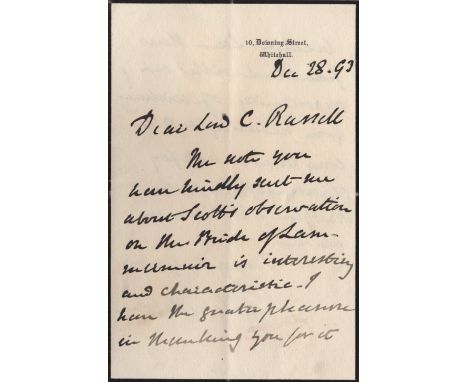 10, Downing Street,
Whitehall.
Dec 28. 93
Dear Lord C. Russell
The note you
have kindly sent me
about Scott's observation
on the Bride of Lam-
mermuir is interesting
and characteristic. I
have the greater pleasure
in thanking you for it